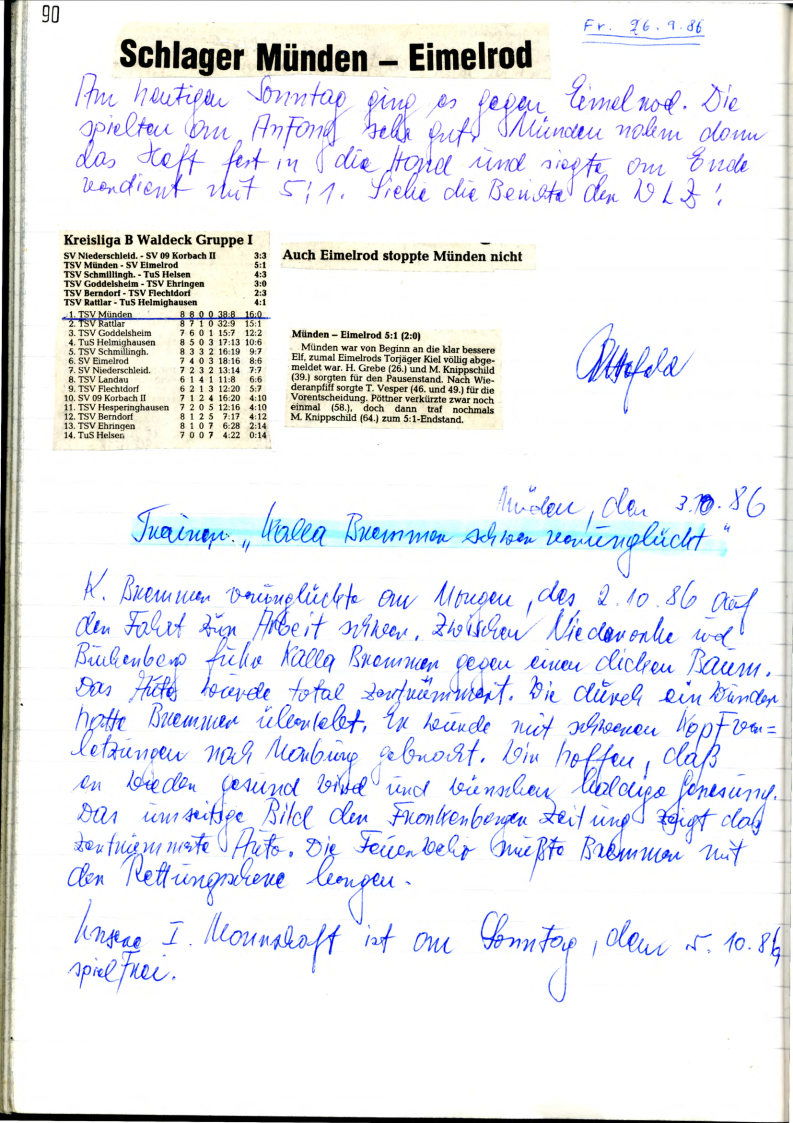 90
Fr. 26.9.86
Schlager Münden – Eimelrod
Am heutigen Sonntag ging es gegen Eimelrod. Die
spielten am Anfang sehr gut. Münden nahm dann
das Heft fest in die Hand und siegte am Ende
verdient mit 5:1. Siehe die Berichte der WLZ!
Kreisliga B Waldeck Gruppe I
SV Niederschleid. - SV 09 Korbach II 3:3
TSV Münden - SV Eimelrod 5:1
TSV Schmillingh. - TuS Helsen 4:3
TSV Goddelsheim - TSV Ehringen 3:0
TSV Berndorf - TSV Flechtdorf 2:3
TSV Rattlar - TuS Helmighausen 4:1
1. TSV Münden 8 8 0 0 38:8 16:0
2. TSV Rattlar 8 7 1 0 32:9 15:1
3. TSV Goddelsheim 7 6 0 1 15:7 12:2
4. TuS Helmighausen 8 5 0 3 17:13 10:6
5. TSV Schmillingh. 8 3 3 2 16:19 9:7
6. SV Eimelrod 7 4 0 3 18:16 8:6
7. SV Niederschleid. 7 2 3 2 13:14 7:7
8. TSV Landau 6 1 4 1 11:8 6:6
9. TSV Flechtdorf 6 2 1 3 12:20 5:7
10. SV 09 Korbach II 7 1 2 4 16:20 4:10
11. TSV Hesperinghausen 7 2 0 5 12:16 4:10
12. TSV Berndorf 8 1 2 5 7:17 4:12
13. TSV Ehringen 8 1 0 7 6:28 2:14
14. TuS Helsen 7 0 0 7 4:22 0:14
Auch Eimelrod stoppte Münden nicht
Münden – Eimelrod 5:1 (2:0)
Münden war von Beginn an die klar bessere
Elf, zumal Eimelrods Torjäger Kiel völlig abge-
meldet war. H. Grebe (26.) und M. Knippschild
(39.) sorgten für den Pausenstand. Nach Wie-
deranpfiff sorgte T. Vesper (46. und 49.) für die
Vorentscheidung. Pöttner verkürzte zwar noch
einmal (58.), doch dann traf nochmals
M. Knippschild (64.) zum 5:1-Endstand.
Münden, den 3.10.86
Trainer „Kalla Bremmer schwer verunglückt"
K. Bremmer verunglückte am Morgen, des 2.10.86 auf
der Fahrt zur Arbeit schwer. Zwischen Niederorke und
Buchenberg fuhr Kalla Bremmer gegen einen dicken Baum.
Das Auto wurde total zertrümmert. Wie durch ein Wunder
hatte Bremmer überlebt. Er wurde mit schweren Kopfver=
letzungen nach Marburg gebracht. Wir hoffen, daß
er wieder gesund wird und wünschen baldige Genesung.
Das umseitige Bild der Frankenberger Zeitung zeigt das
zertrümmerte Auto. Die Feuerwehr mußte Bremmer mit
der Rettungschere bergen.
Unsere I. Mannschaft ist am Sonntag, dem 5.10.86
spielfrei.